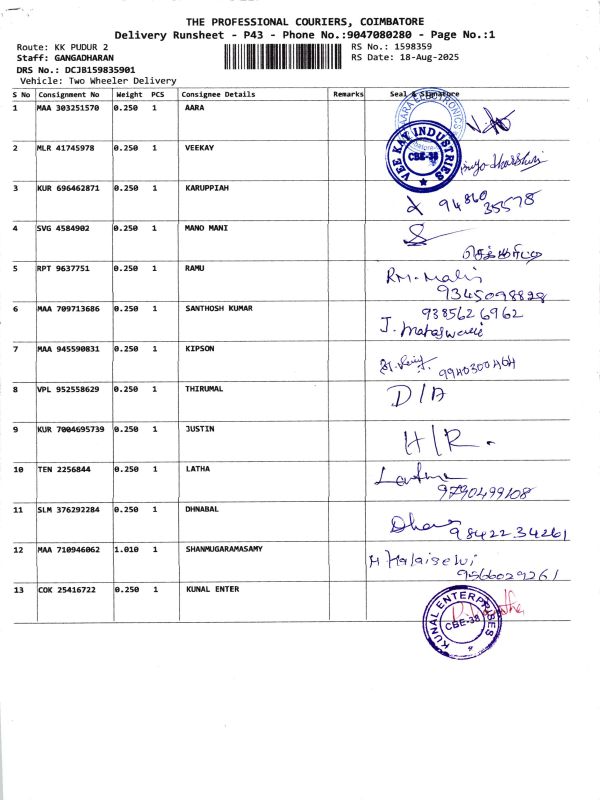 THE PROFESSIONAL COURIERS, COIMBATORE
Delivery Runsheet - P43 - Phone No.:9047080280 - Page No.:1
Route: KK PUDUR 2 RS No.: 1598359
Staff: GANGADHARAN RS Date: 18-Aug-2025
DRS No.: DCJB159835901
Vehicle: Two Wheeler Delivery
S No Consignment No Weight PCS Consignee Details Remarks Seal & Signature
1 MAA 303251570 0.250 1 AARA
2 MLR 41745978 0.250 1 VEEKAY VEE KAY INDUSTRIES CBE-38
3 KUR 696462871 0.250 1 KARUPPIAH 94860
35578
4 SVG 4584902 0.250 1 MANO MANI
5 RPT 9637751 0.250 1 RAMU
9345098828
6 MAA 709713686 0.250 1 SANTHOSH KUMAR 9385626962
7 MAA 945590831 0.250 1 KIPSON 9940300464
8 VPL 952558629 0.250 1 THIRUMAL D/A
9 KUR 7004695739 0.250 1 JUSTIN H/R.
10 TEN 2256844 0.250 1 LATHA Latha
9790499108
11 SLM 376292284 0.250 1 DHNABAL
9842234261
12 MAA 710946062 1.010 1 SHANMUGARAMASAMY M Kalaiselvi
9566029261
13 COK 25416722 0.250 1 KUNAL ENTER KUNAL ENTERPRISES CBE-38